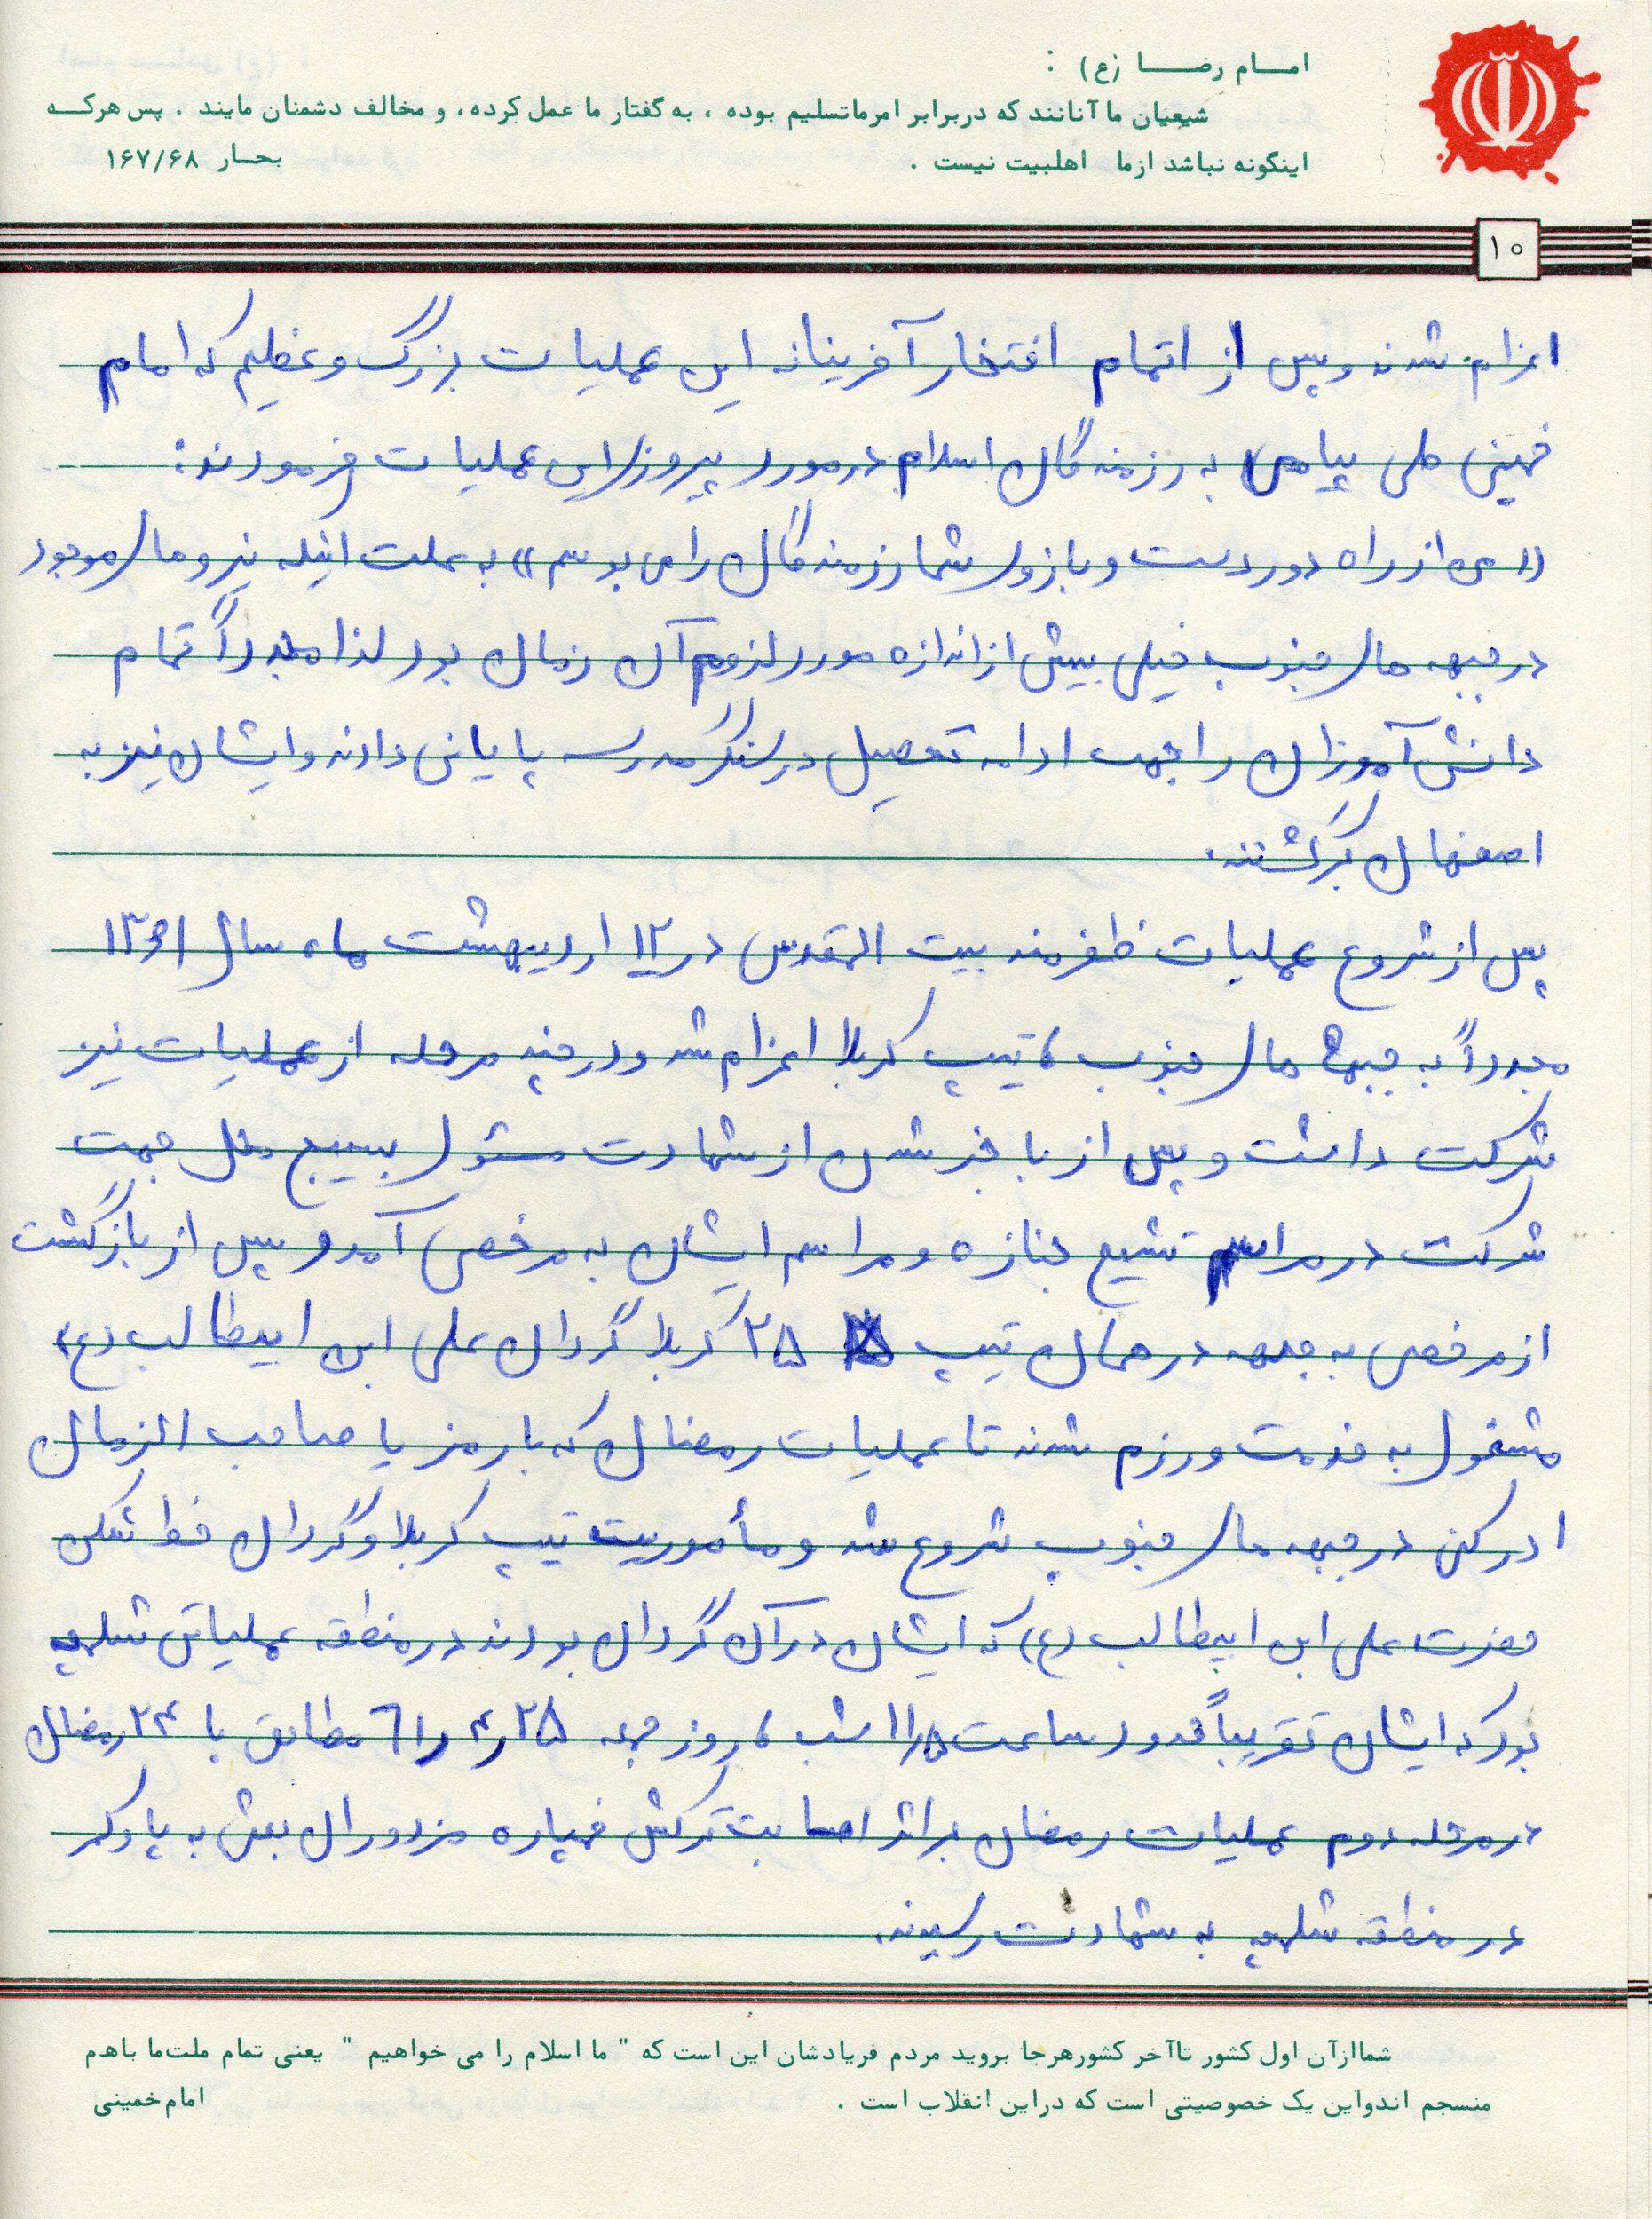 امام رضا (ع) :
شیعیان ما آنانند که دربرابر امرماتسلیم بوده ، به گفتار ما عمل کرده ، و مخالف دشمنان مایند . پس هرکه
اینگونه نباشد ازما اهلبیت نیست . بحار ۱۶۷/۶۸
۱۰
اعزام شدند و پس از اتمام افتخار آفرینانه این عملیات بزرگ و عظیم که امام
خمینی طی پیامی به رزمندگان اسلام در مورد پیروزی این عملیات فرمودند:
«من از راه دور دست و بازوی شما رزمندگان را می بوسم» به علت اینکه نیروهای موجود
در جبهه های جنوب خیلی بیش از اندازه مورد لزوم آن زمان بود لذا مجدداً تمام
دانش آموزان را جهت ادامه تحصیل در سنگر مدرسه پایانی دادند و ایشان نیز به
اصفهان برگشتند.
پس از شروع عملیات ظفرمند بیت المقدس در ۱۲ اردیبهشت ماه سال ۱۳۶۱
مجدداً به جبهه های جنوب ، تیپ کربلا اعزام شد و در چند مرحله از عملیات نیز
شرکت داشت و پس از با خبر شدن از شهادت مسئول بسیج محل جهت
شرکت در مراسم تشیع جنازه و مراسم ایشان به مرخصی آمد و پس از بازگشت
از مرخصی به جبهه در همان تیپ ۲۵ کربلا گردان علی ابن ابیطالب (ع)
مشغول به خدمت و رزم شدند تا عملیات رمضان که با رمز یا صاحب الزمان
ادرکنی در جبهه های جنوب شروع شد و مأموریت تیپ کربلا و گردان خط شکن
حضرت علی ابن ابیطالب (ع) که ایشان در آن گردان بودند در منطقه عملیاتی شلمچه
بود که ایشان تقریباً حدود ساعت ۱۱/۵ شب ، روز جمعه ۲۵ ر ۴ ر ۶۱ مطابق با ۲۴ رمضان
در مرحله دوم عملیات رمضان بر اثر اصابت ترکش خمپاره مزدوران بعثی به پا و کمر
در منطقه شلمچه به شهادت رسیدند.
شماازآن اول کشور تاآخر کشورهرجا بروید مردم فریادشان این است که " ما اسلام را می خواهیم " یعنی تمام ملت‌ما باهم
منسجم اندواین یک خصوصیتی است که دراین انقلاب است . امام خمینی